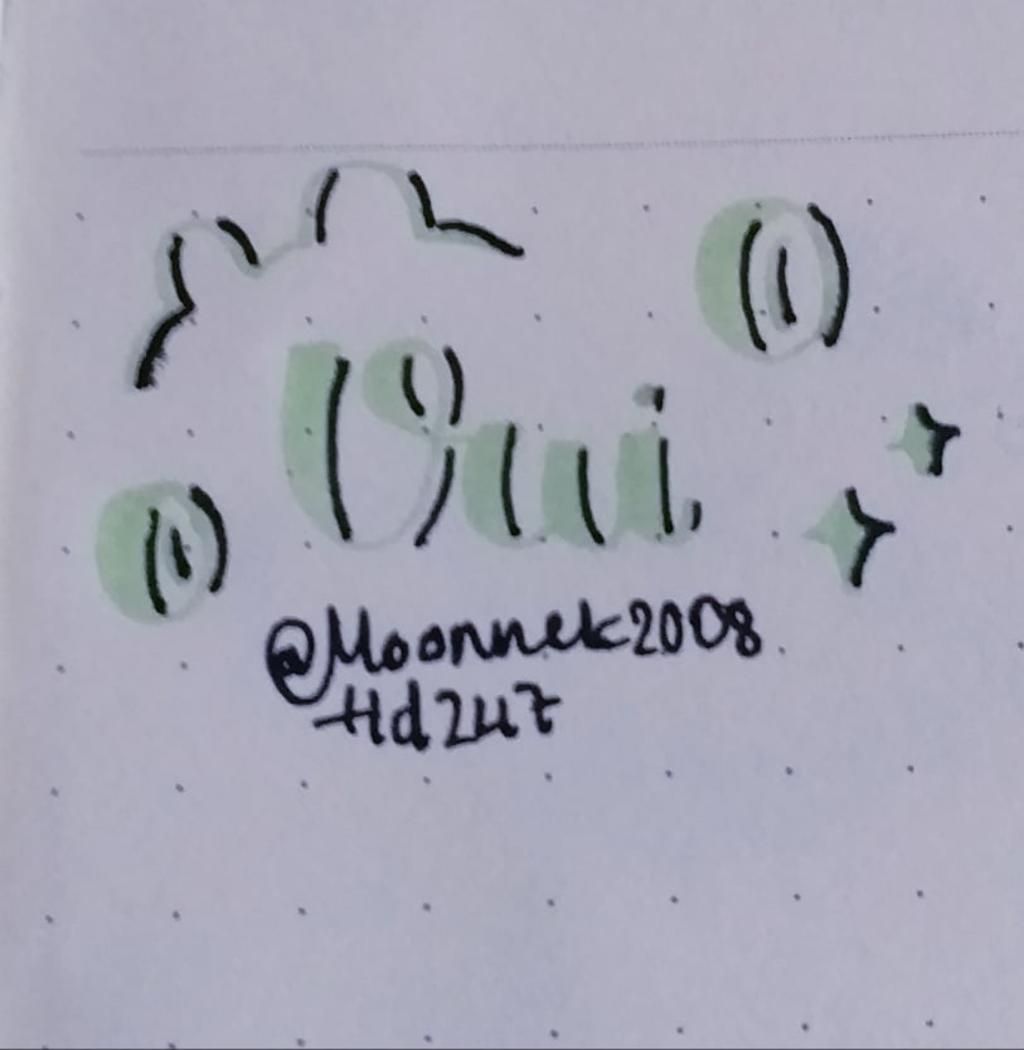 Vui
@Moonnek2008
Hd247